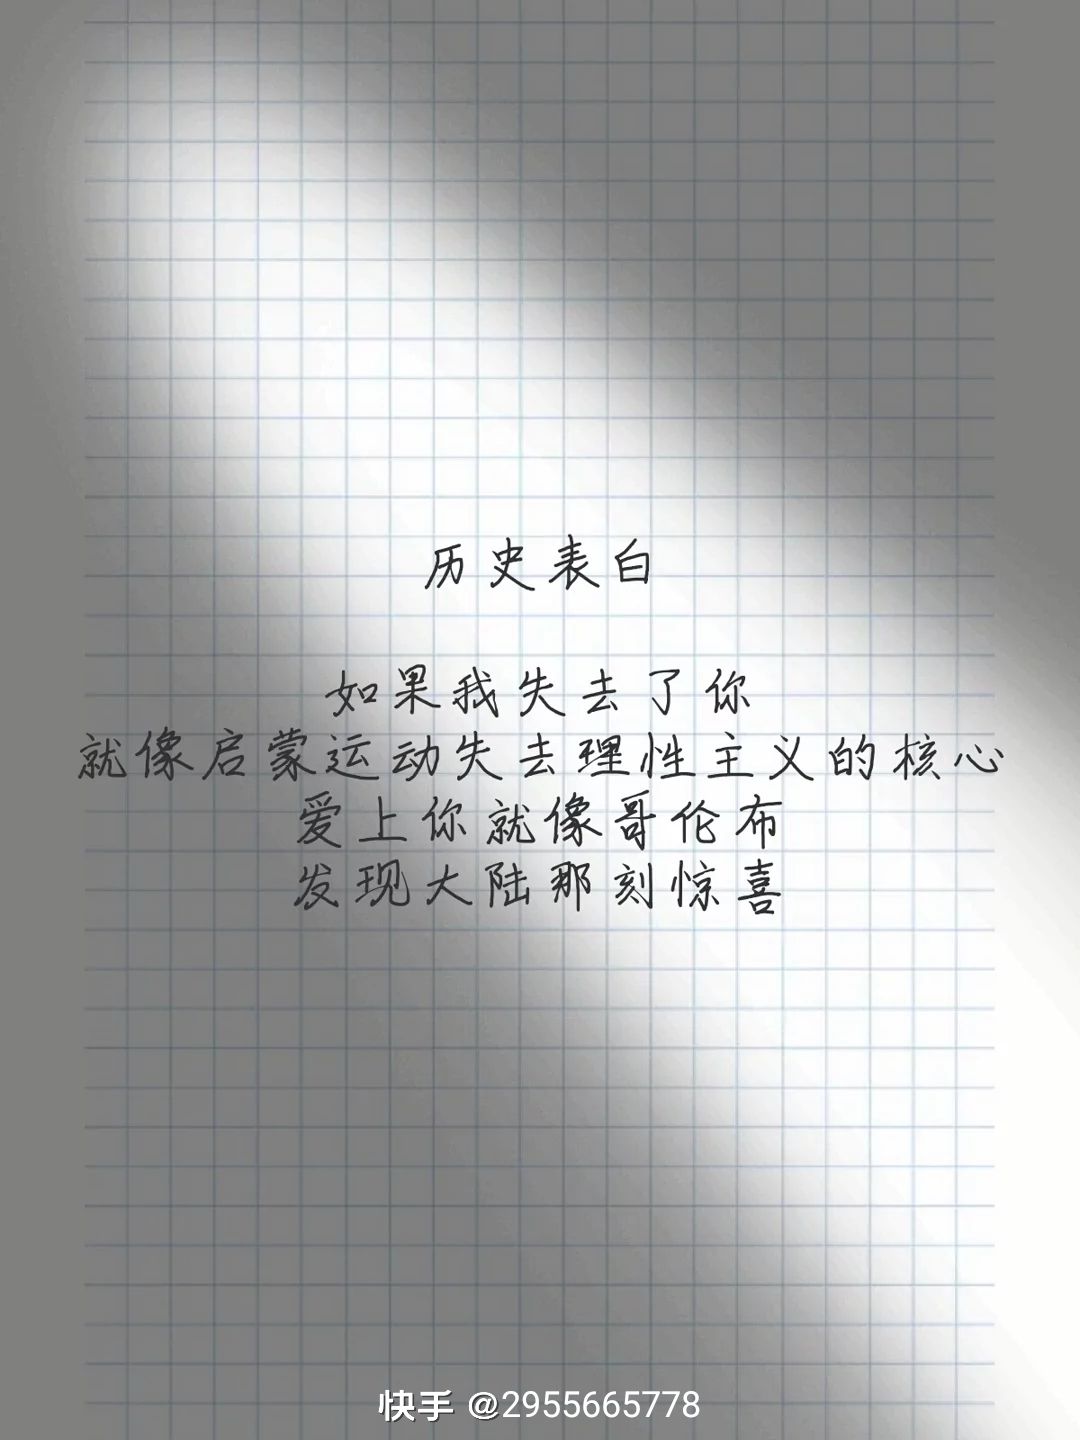 历史表白
如果我失去了你
就像启蒙运动失去理性主义的核心
爱上你就像哥伦布
发现大陆那刻惊喜
快手 @2955665778